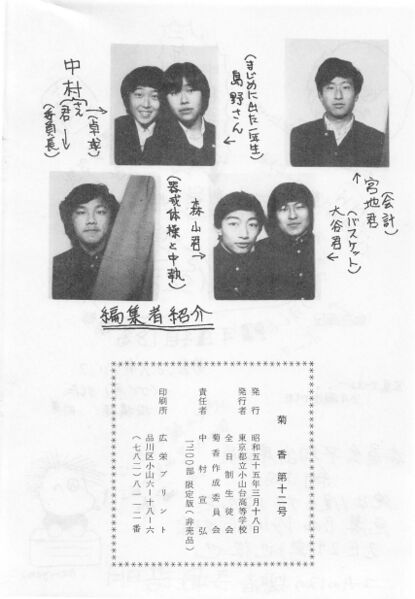 中村(さん
君)
(卓球)
(委員長)
(まじめに出た一年生)
島野さん
(会計)
宮地君
(バスケット)
大谷君
森山君
(器械体操と中執)
編集者紹介
菊香 第十二号
発行 昭和五十五年三月十八日
発行者 東京都立小山台高等学校
全日制生徒会
菊香作成委員会
責任者 中村宣弘
一二〇〇部 限定版(非売品)
印刷所 広栄プリント
品川区小山六ー十八ー六
(七八二)八一一二番